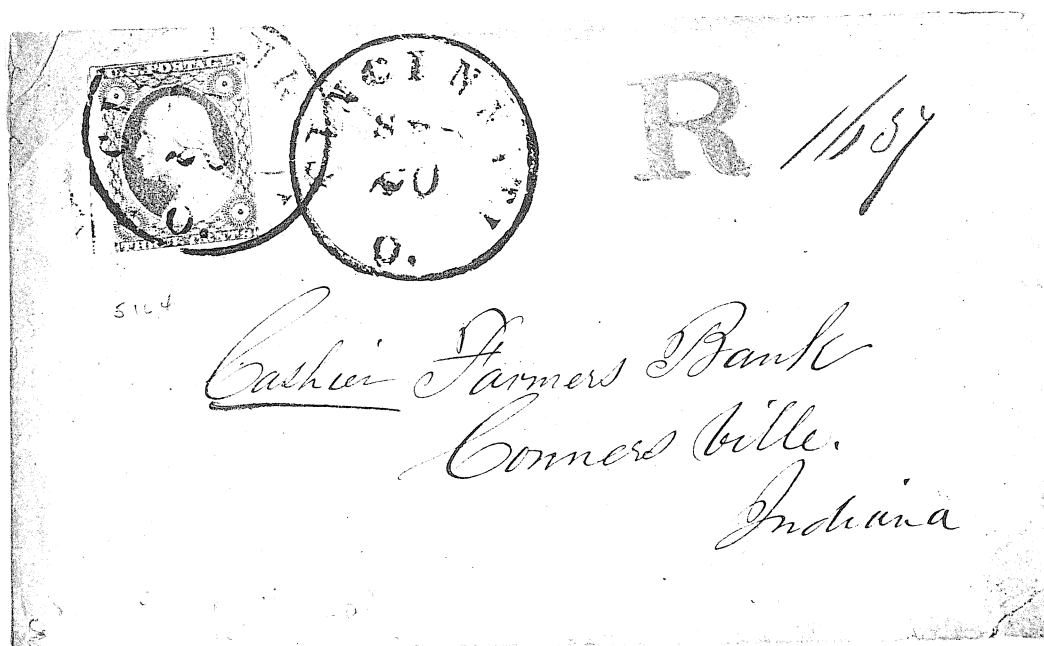 U.S. POSTAGE
THREE CENTS
CINCINNATI
20
O.
R 1637
Cashier Farmers Bank
Conners Ville.
Indiana